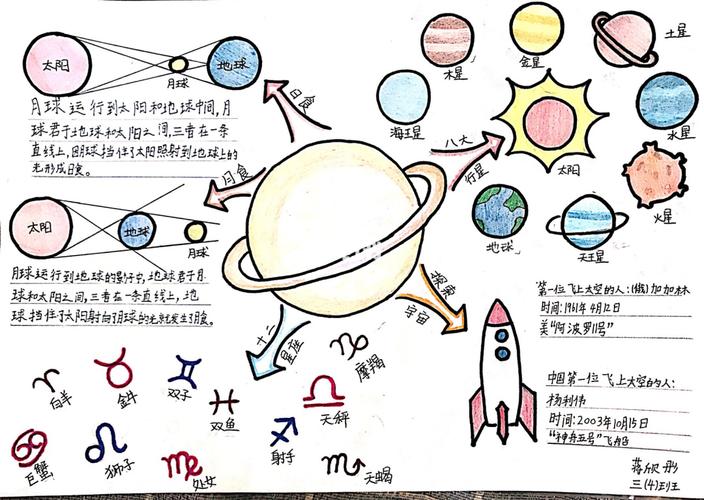 太阳
月球
地球
月球运行到太阳和地球中间,月
球君于地球和太阳之间,三者在一条
直线上,因球挡住了太阳照射到地球上的
光形成日食。
日食
月食
太阳
地球
月球
月球运行到地球的影仔中,地球君于月
球和太阳之间,三者在一条直线上,地
球挡住了太阳射向月球的光就发生了月食。
八大
行星
木星
金星
土星
海王星
太阳
水星
火星
地球
天王星
探索
宇宙
第一位飞上太空的人:(俄)加加林
时间:1961年4月12日
美"阿波罗1号"
中国第一位飞上太空的人:
杨利伟
时间:2003年10月15日
"神舟五号"飞船
十二
星座
白羊
金牛
双子
双鱼
天秤
摩羯
巨蟹
狮子
处女
射手
天蝎
三(4)班